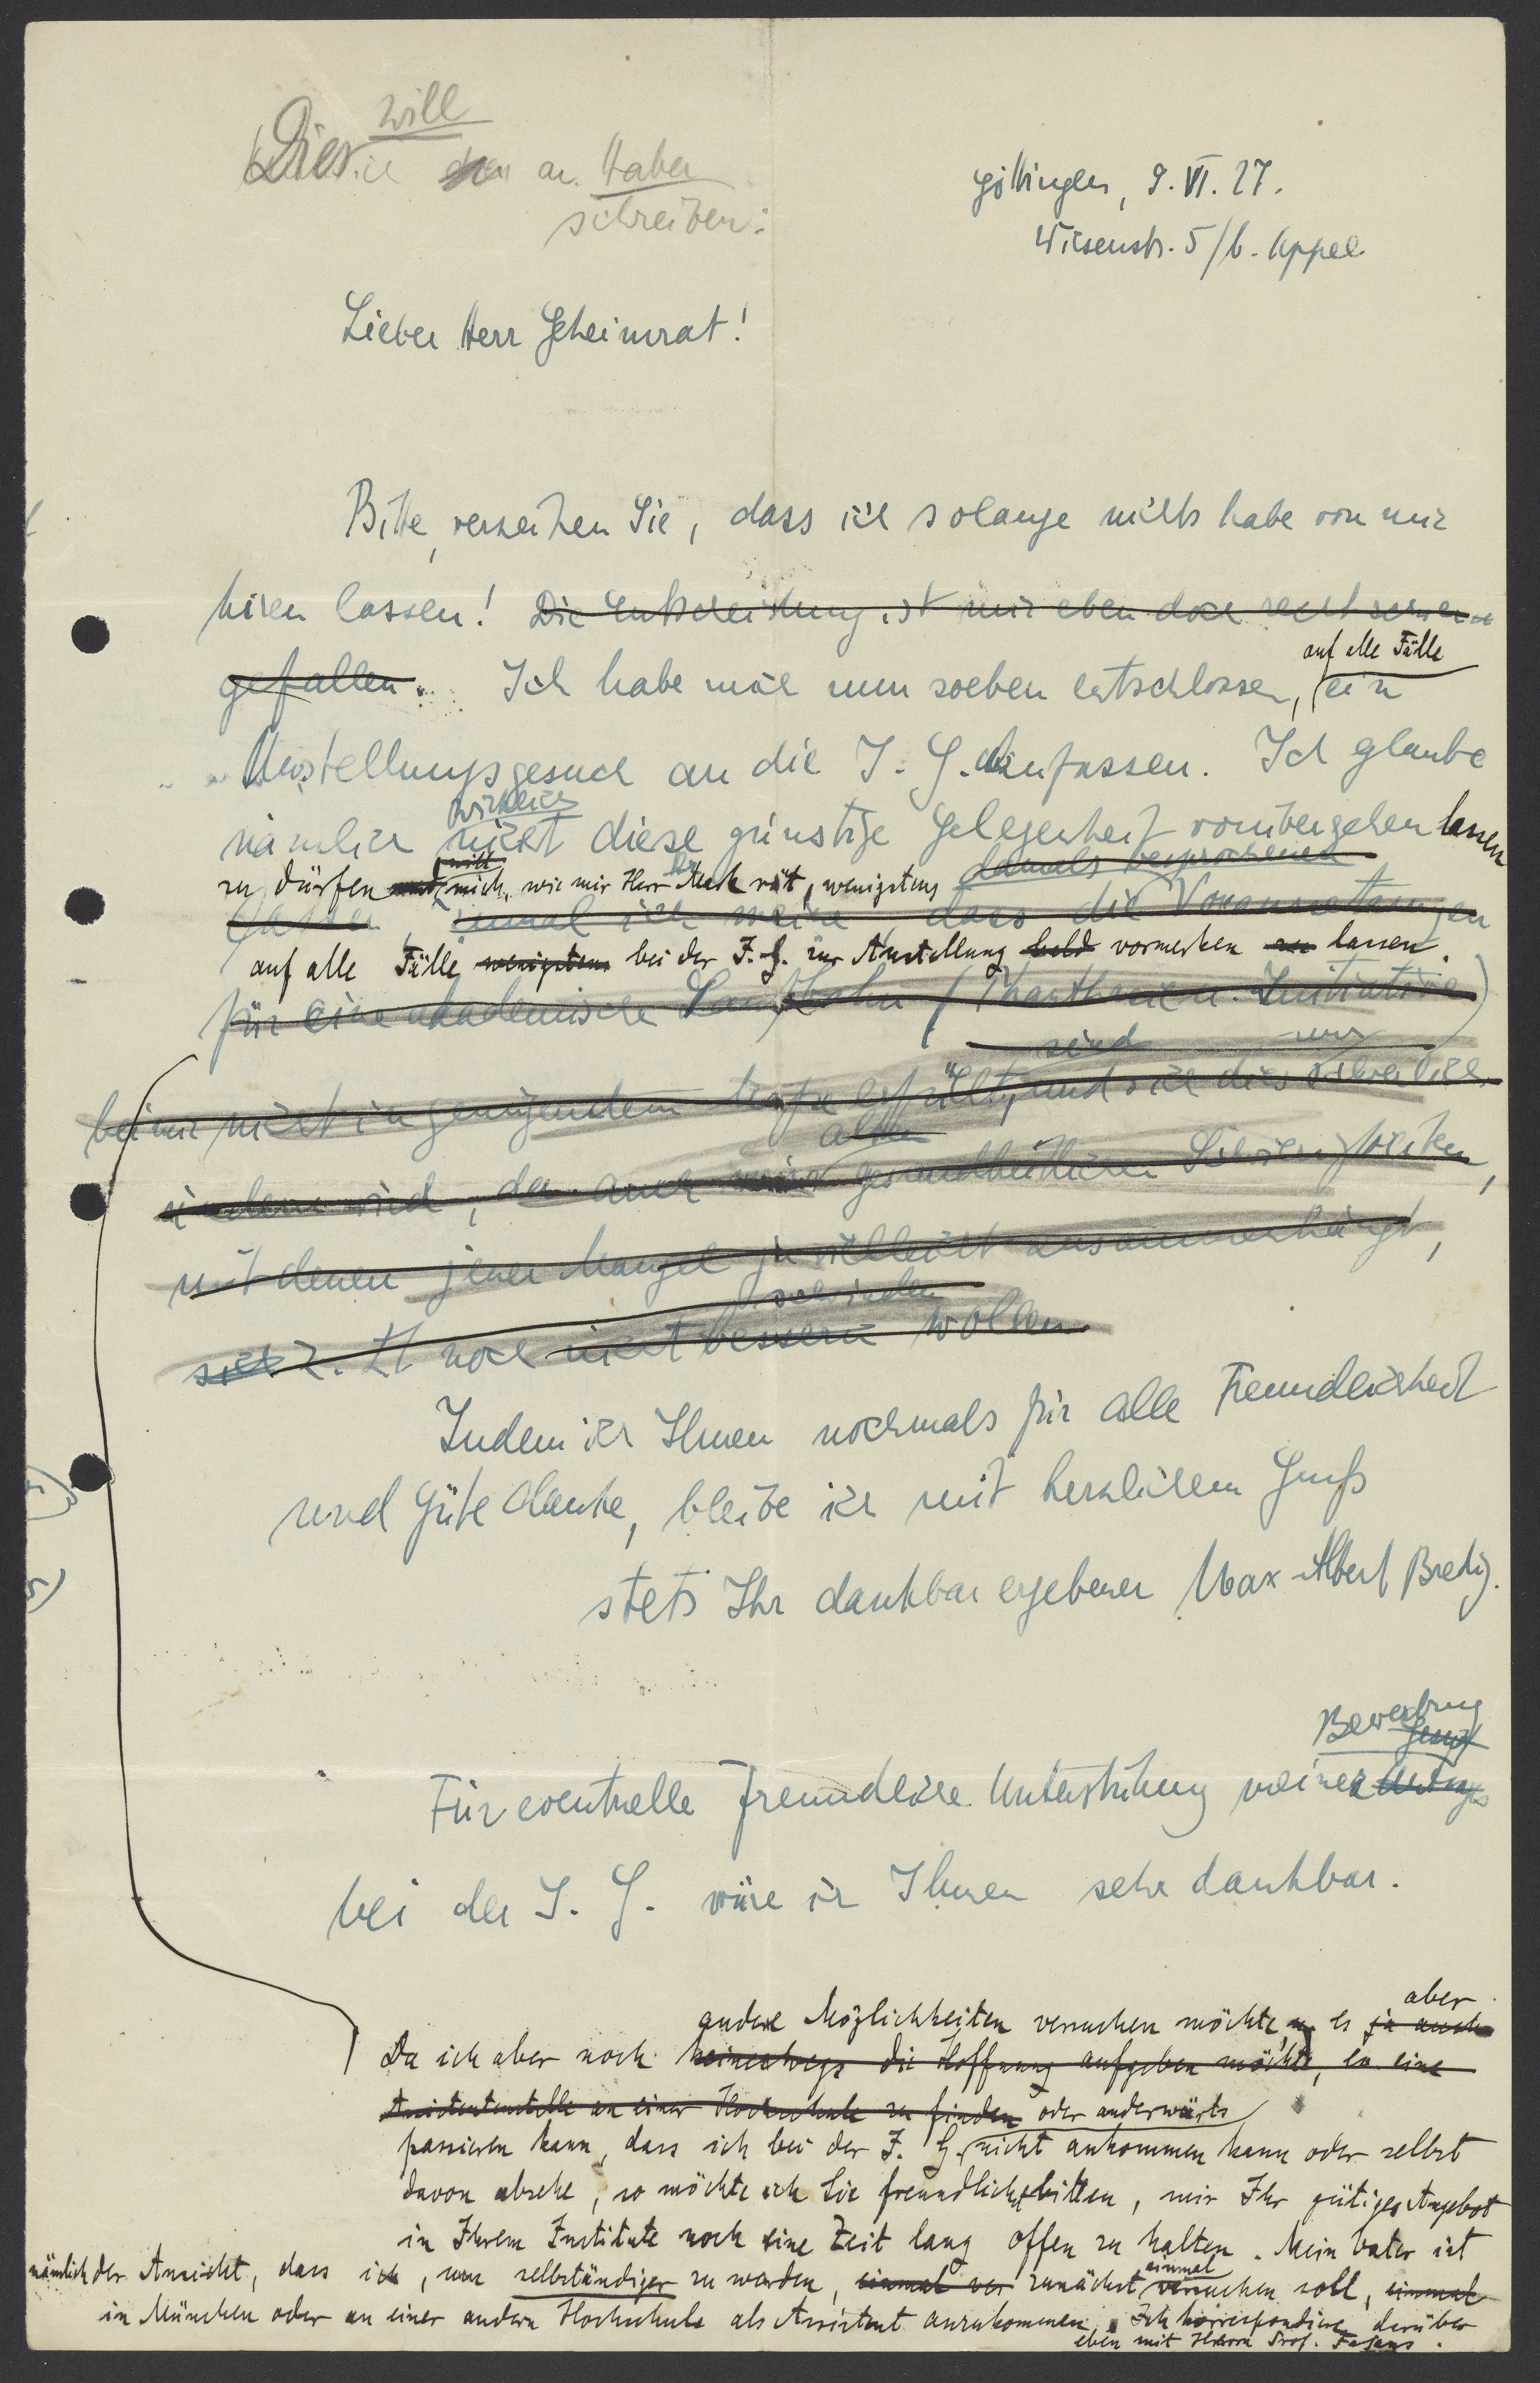 will
Dies ich an Haber
schreiben:
Göttingen, 9. VI. 27.
Wiesenstr. 5/b. Appel
Lieber Herr Geheimrat!
Bitte, verzeihen Sie, dass ich solange nichts habe von mir
hören lassen! Die Entscheidung ist mir eben doch recht schwer
gefallen. Ich habe mich nun soeben entschlossen, ein
auf alle Fälle
Anstellungsgesuch an die I. G. abzufassen. Ich glaube
wirklich
nämlich nicht diese günstige Gelegenheit vorübergehen lassen
zu dürfen und will mich, wie mir Herr Mark rät, wenigstens damals besprochenen
lassen, zumal ich weiss, dass die Voraussetzungen
auf alle Fälle wenigstens bei der I. G. zur Anstellung bald vormerken zu lassen.
für eine akademische Laufbahn (Phantasie u. Initiative)
sind nur
bei mir nicht in genügendem Maße erfüllt, und sich dies schwerlich
alten
ändern wird, da auch meine gesundheitlichen Schwierigkeiten,
mit denen jener Mangel ja vielleicht zusammenhängt,
schwinden
sich z. Zt noch nicht bessern wollen.
Indem ich Ihnen nochmals für alle Freundlichkeit
und Güte danke, bleibe ich mit herzlichem Gruß
stets Ihr dankbar ergebener Max Albert Bredig.
Bewerbung
Für eventuelle freundliche Unterstützung meiner
bei der I. G. wäre ich Ihnen sehr dankbar.
andere Möglichkeiten versuchen möchte, u. es ja auch aber
Da ich aber noch keineswegs die Hoffnung aufgeben möchte, eine
Assistentenstelle an einer Hochschule zu finden oder anderwärts
passieren kann, dass ich bei der I. G. nicht ankommen kann oder selbst
davon absehe, so möchte ich Sie freundlichst bitten, mir Ihr gütiges Angebot
in Ihrem Institute noch eine Zeit lang offen zu halten. Mein Vater ist
nämlich der Ansicht, dass ich, um selbständiger zu werden, einmal ver zunächst einmal versuchen soll, einmal
in München oder an einer andern Hochschule als Assistent anzukommen. Ich korrespondiere darüber
eben mit Herrn Prof. Fajans.